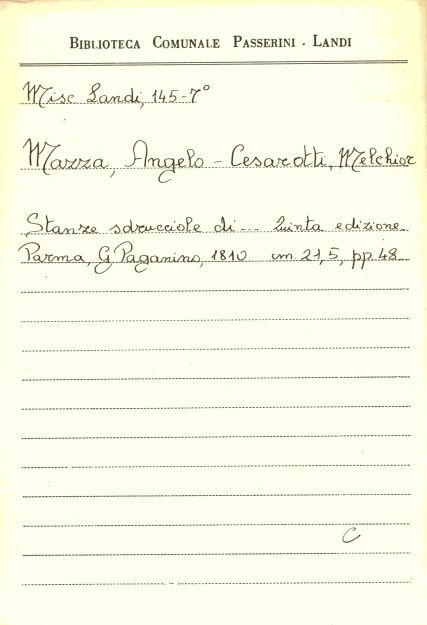 BIBLIOTECA COMUNALE PASSERINI - LANDI
Misc Landi, 145-7°
Mazza, Angelo - Cesarotti, Melchior
Stanze sdrucciole di... Quinta edizione.
Parma, G. Paganino, 1810 cm 21,5, pp. 48
C